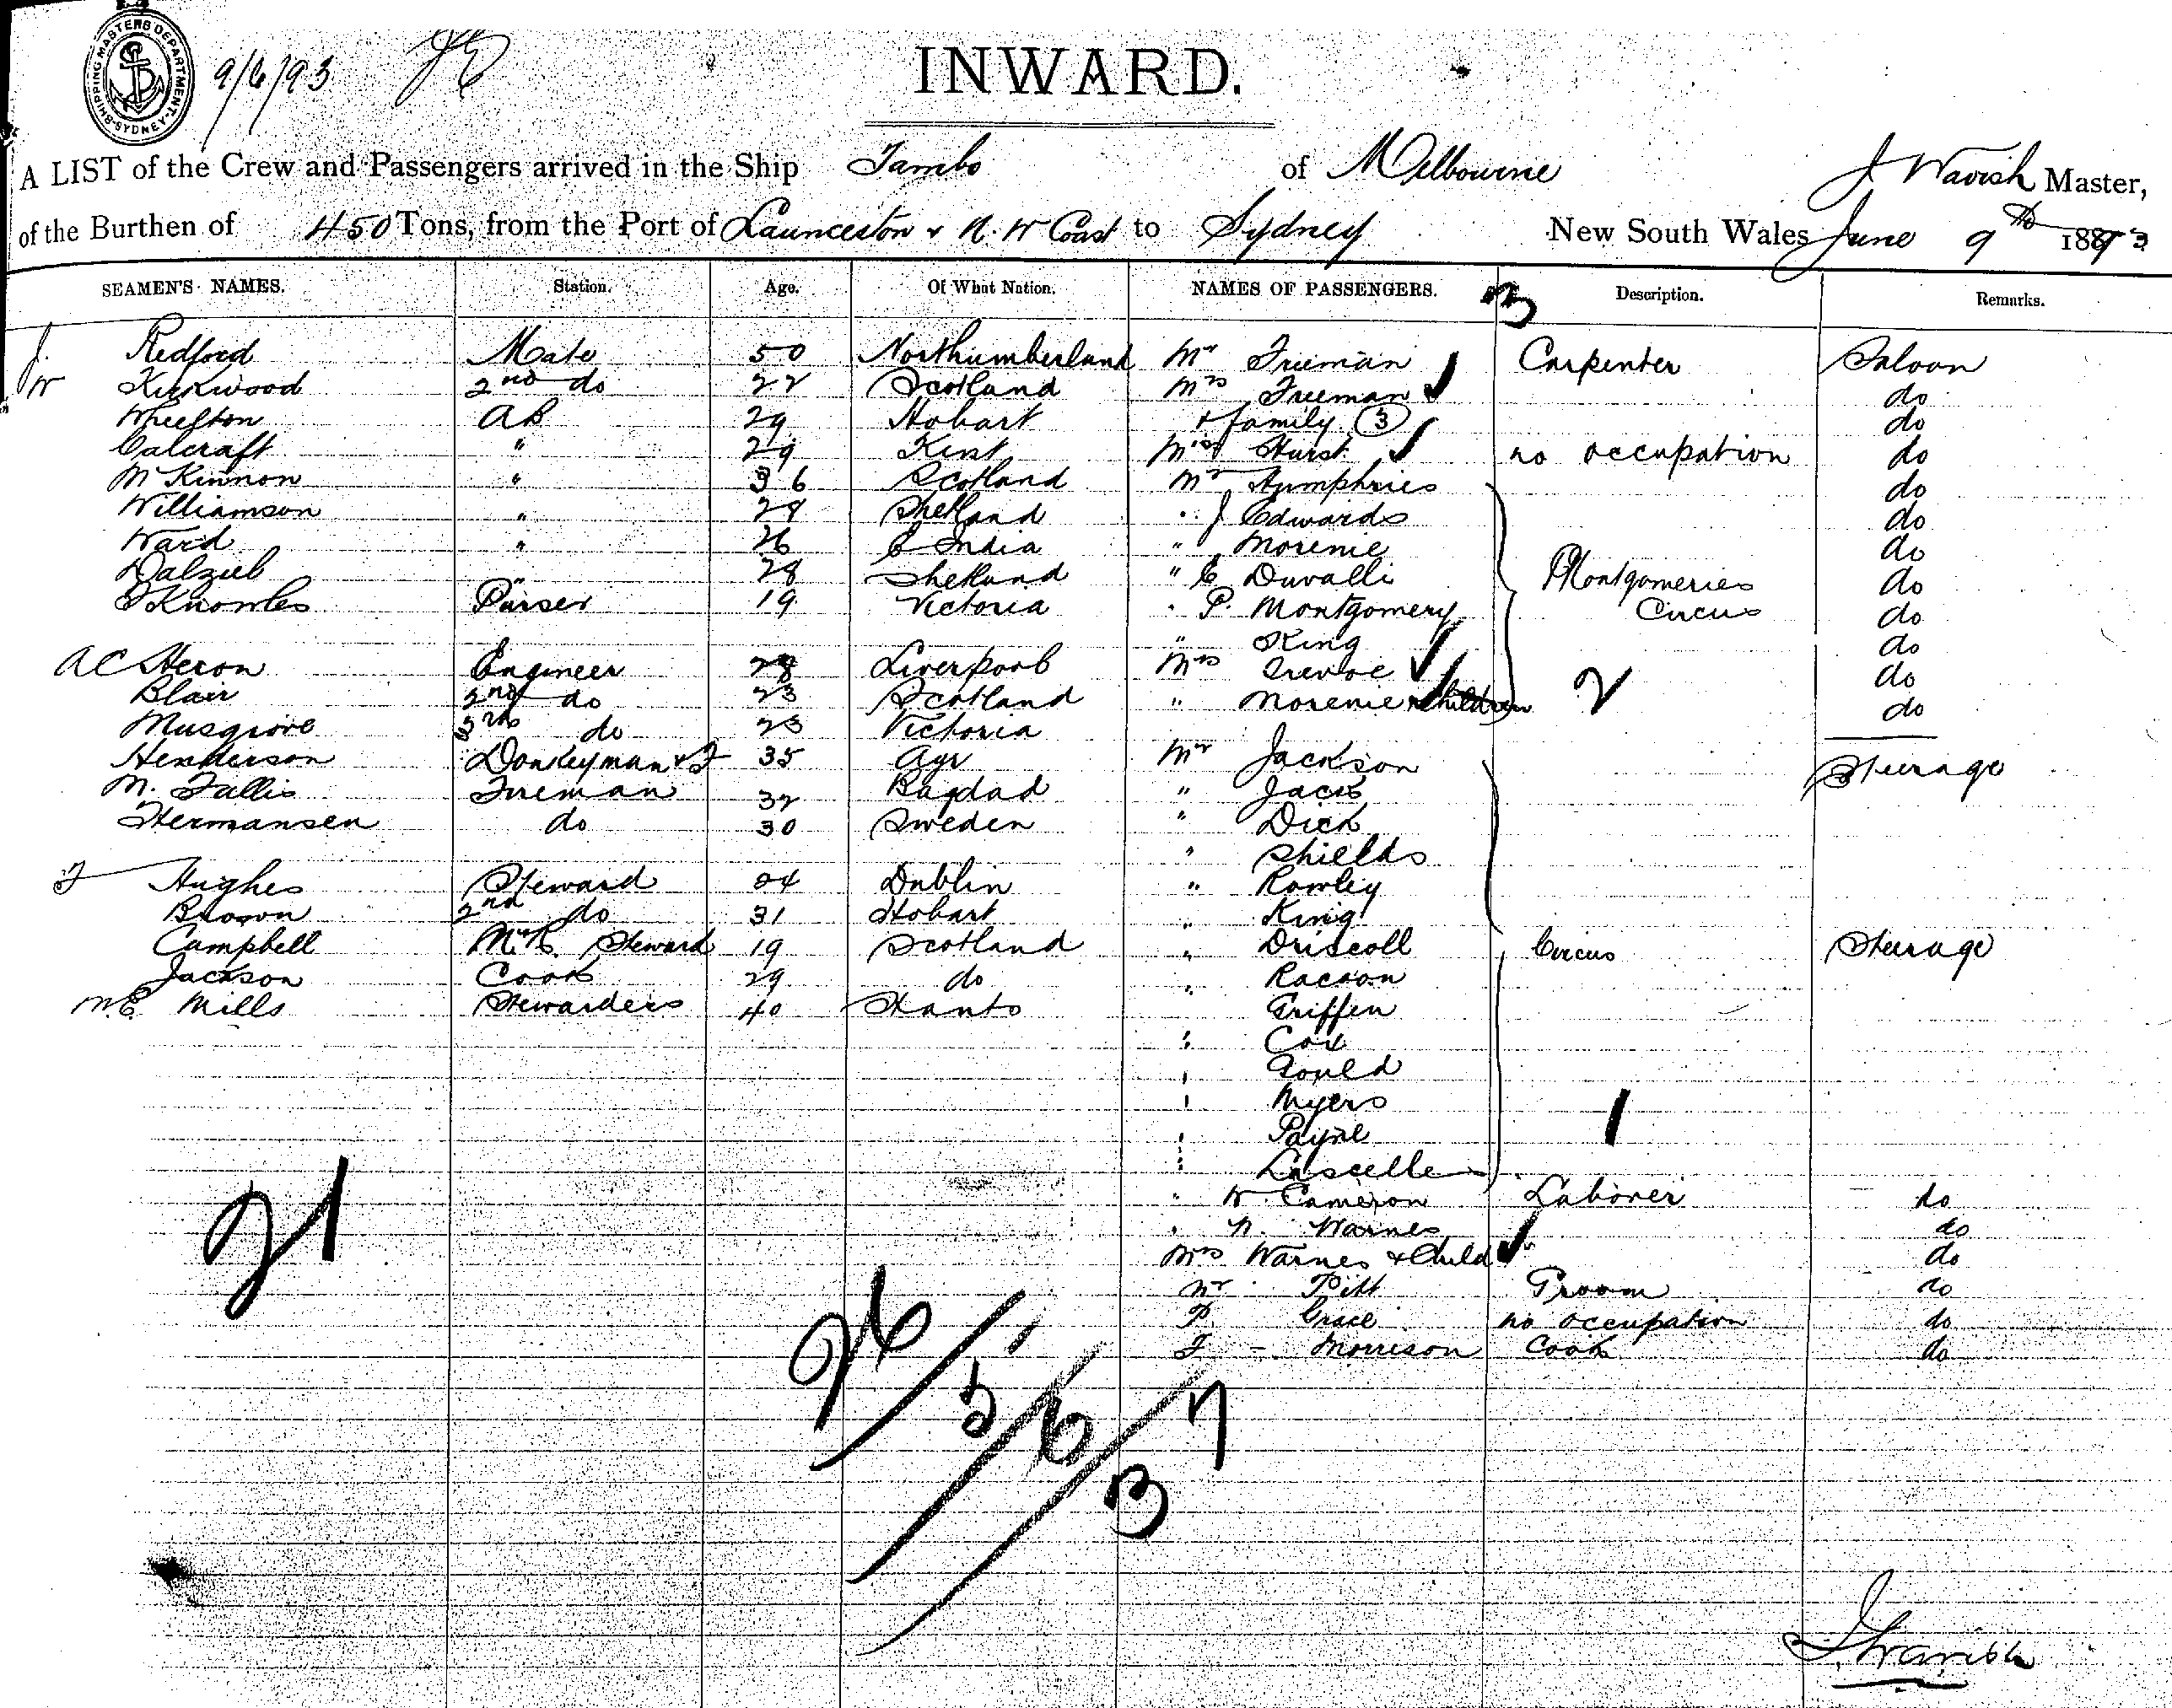 SHIPPING MASTERS DEPARTMENT SYDNEY
9/6/93
INWARD.
A LIST of the Crew and Passengers arrived in the Ship Tambo of Melbourne J Wavish Master,
of the Burthen of 450 Tons, from the Port of Launceston & N. W Coast to Sydney New South Wales June 9th 1893
SEAMEN'S NAMES. Station. Age. Of What Nation. NAMES OF PASSENGERS. 3 Description. Remarks.
J. Redford Mate 50 Northumberland Mr Freeman Carpenter Saloon
W Kirkwood 2nd do 22 Scotland Mrs Freeman do
Wheelton AB 29 Hobart & family (3) do
Calcraft " 29 Kent Hurst no occupation do
McKinnon " 36 Scotland Mr Humphries do
Williamson " 28 Shetland " J Edwards do
Ward " 26 E India " Morenie do
Dalziel " 28 Shetland " C Duvalli Montgomeries do
Knowles Purser 19 Victoria " P. Montgomery Circus do
" King do
A C Heron Engineer 28 Liverpool Mrs Trevoe do
Blair 2nd do 23 Scotland " Morenie & Children 2 do
Musgrove 3rd do 23 Victoria
Henderson Donkeyman & F 35 Ayr Mr Jackson Steerage
M. Fallis Fireman 32 Bagdad " Jack
Hermansen do 30 Sweden " Dick
" Shields
F Hughes Steward Dublin " Rowley
Brown 2nd do 31 Hobart " King
Campbell Steward 19 Scotland " Driscoll Circus Steerage
Jackson Cook 29 do " Racoon
M.E. Mills Stewardess 40 Hants Griffen
" Cox
" Gould
" Myers 1
" Payne
" Lascelles
" W Cameron Laborer do
21
" N. Warnes do
Mrs Warnes & Child do
Mr Pitt Groom do
P. Grace no occupation do
F - Morrison Cook do
26/5/6/3 7
J Wavish